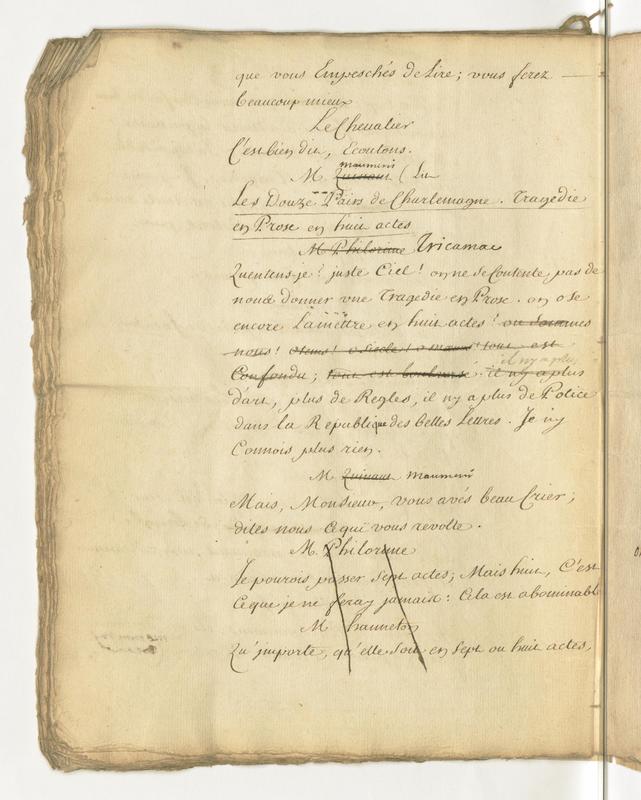 que vous Empeschés de Lire; vous ferez
beaucoup mieux
Le Chevalier
C'est bien dit, Ecoutons.
maumeni
M. Quinaut (Lit
Les Douze Pairs de Charlemagne. Tragedie
en Prose en huit actes
M. Philorime Tricamax
Qu'entens-je? juste Ciel! on ne se Contente pas de
nous donner une Tragedie en Prose. on ose
encore La mettre en huit actes! ou sommes
nous! o tems! o siecle! o mœurs! tout est
il n'y a plus
Confondu; tout est boulversé. il n'y a plus
d'art, plus de Regles, il n'y a plus de Police
dans la Republique des belles Lettres. Je n'y
Connois plus rien.
M. Quinaut maumeni
Mais, Monsieur, vous avés beau Crier;
dites nous Ce qui vous revolte.
M. Philorime
Je pourois passer Sept actes; Mais huit, C'est
Ce que je ne feray jamais: Cela est abominable
M. hanneton
Qu'importe, qu'elle soit en Sept ou huit actes,